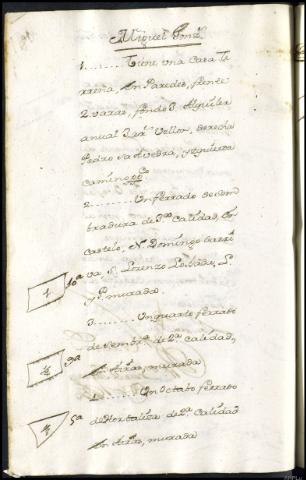 Miguel Gonz.
1........ Tiene una Casa te
rreña, en Paredes, frente
2 varas, fondo 3. Alquiler
anual 3 rs. Vellon, derecha
Pedro Saavedra, yzquierda
camino
2........ Un ferrado de sem
bradura de 3ª Calidad, en
Castelo, N. Domingo Garri
va, S. Lorenzo L. y P. murada
3....... Un quarto ferrado
de Sembra de 2ª calidad,
en Airas, murada
4....... Un Octabo ferrado
de Hortaliza de 2ª Calidad
en Airas, murada
10ª
9ª
5ª